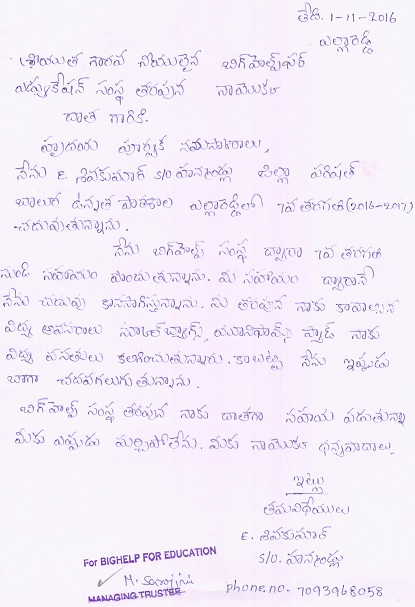 తేది. 1-11-2016
ఎల్లారెడ్డి
శ్రీయుత గౌరవ నీయులైన బిగ్‌హెల్ప్‌ఫర్
ఎడ్యుకేషన్ సంస్థ తరపున నాయొక్క
దాత గారికి.
హృదయ పూర్వక నమస్కారాలు,
నేను E. శివకుమార్ S/O హన్మండ్లు జిల్లా పరిషత్
బాలుర ఉన్నత పాఠశాల ఎల్లారెడ్డిలో 7వ తరగతి (2016-2017)
చదువుతున్నాను.
నేను బిగ్‌హెల్ప్ సంస్థ ద్వారా 7వ తరగతి
నుండి సహాయం పొందుతున్నాను. మీ సహాయం ద్వారానే
నేను చదువు కొనసాగిస్తున్నాను. మీ తరపున నాకు కావాల్సిన
విద్య అవసరాలు స్కూల్‌బ్యాగ్స్, యూనిఫామ్స్ ప్యాడ్ నాకు
విద్య వసతులు కలిగించుతున్నారు. కాబట్టి నేను ఇప్పుడు
బాగా చదవగలుగుతున్నాను.
బిగ్‌హెల్ప్ సంస్థ తరపున నాకు దాతగా సహాయ పడుతున్నా
మీకు ఎప్పుడు మర్చిపోలేను. మీకు నాయొక్క ధన్యవాదాలు.
ఇట్లు
తమవిధేయులు
E. శివకుమార్
S/O. హన్మండ్లు
phone.no. 7093968058
For BIGHELP FOR EDUCATION
M. Sarojini
MANAGING TRUSTEE